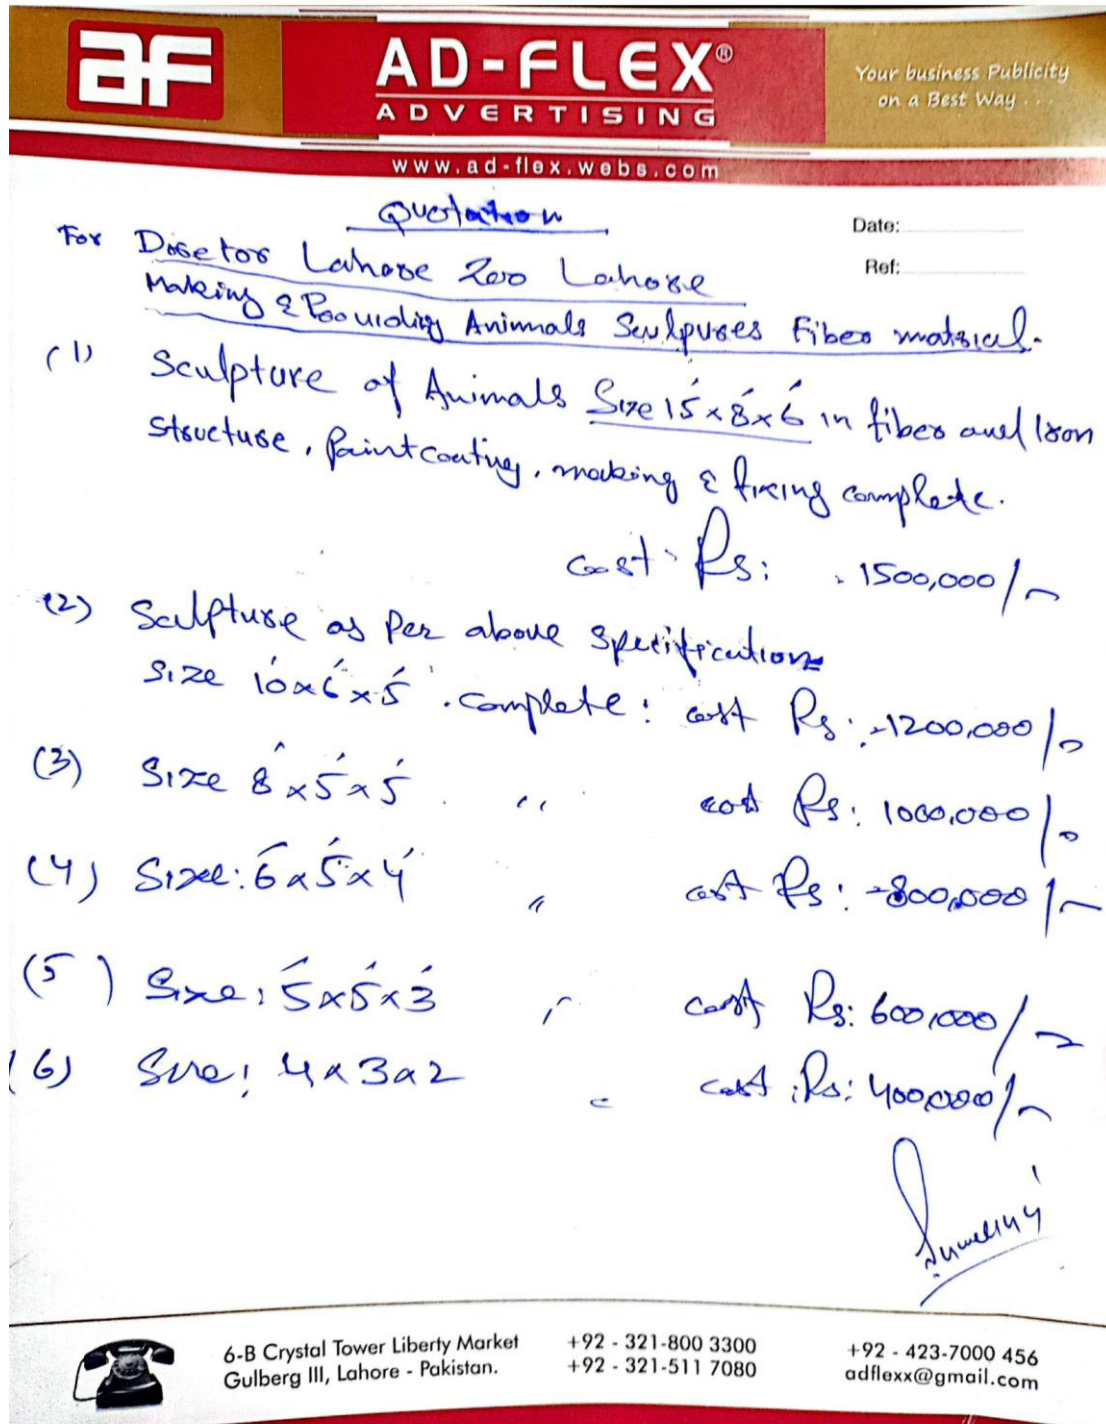 af
AD-FLEX®
ADVERTISING
Your business Publicity
on a Best Way . . .
www.ad-flex.webs.com
Quotation
Date:
Ref:
For Director Lahore Zoo Lahore
Making & Providing Animals Sculpures Fiber matrial.
(1) Sculpture of Animals Size 15'x8'x6' in fiber and Iron
Structure, Paint coating, making & fixing complete.
cost Rs: 1500,000/-
(2) Sculpture as Per above Specifications
Size 10'x6'x5'. Complete: cost Rs: 1200,000/-
(3) Size 8'x5'x5' " cost Rs: 1000,000/-
(4) Size: 6'x5'x4' " cost Rs: 800,000/-
(5) Size: 5'x5'x3' " cost Rs: 600,000/-
(6) Size: 4x3x2 " cost Rs: 400,000/-
6-B Crystal Tower Liberty Market
Gulberg III, Lahore - Pakistan.
+92 - 321-800 3300
+92 - 321-511 7080
+92 - 423-7000 456
adflexx@gmail.com